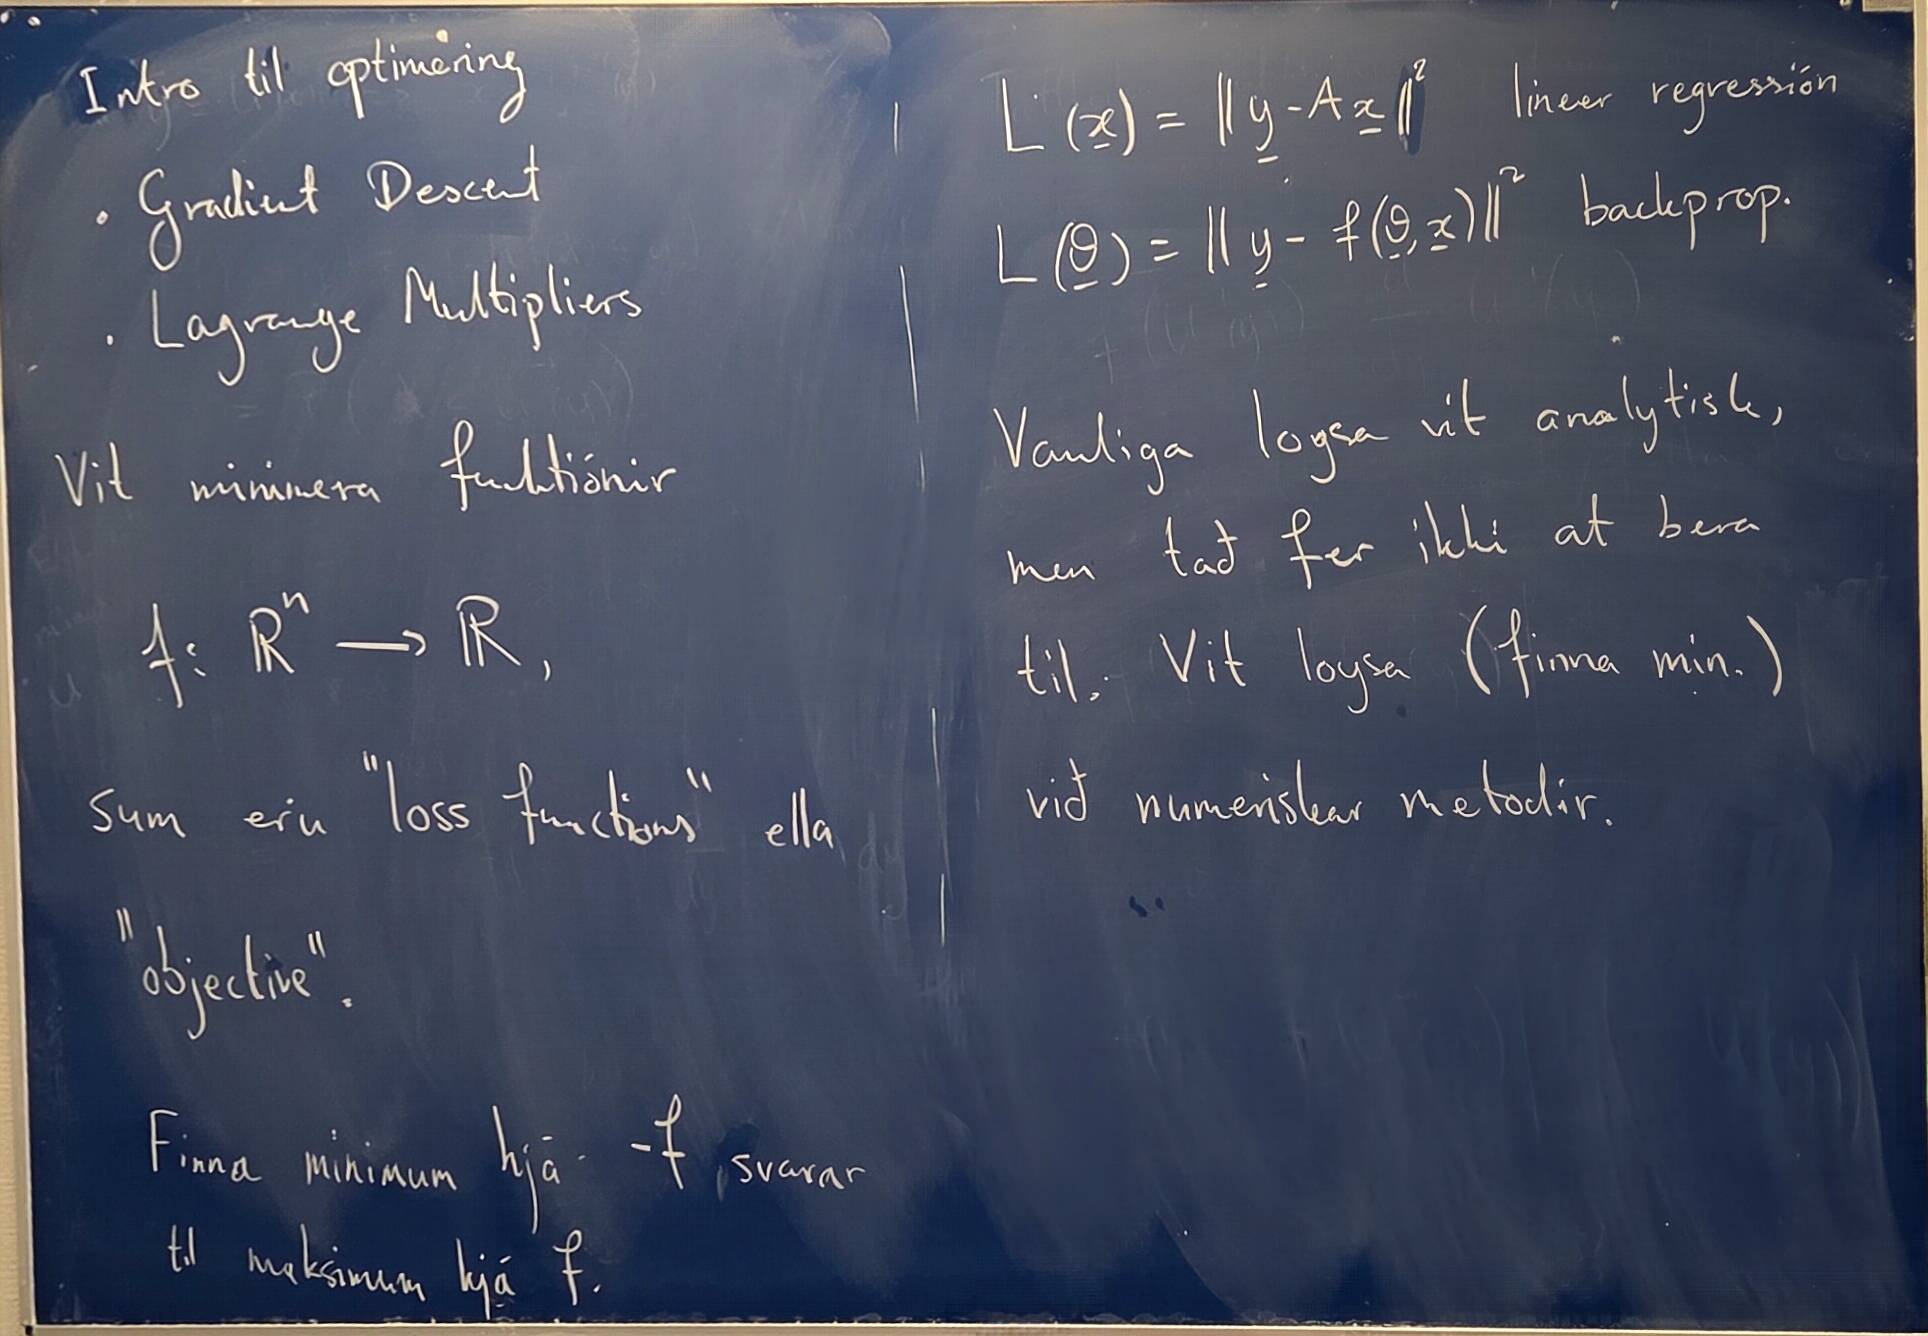 Intro til optimering
• Gradient Descent
• Lagrange Multipliers
Vit minimera funktiónir
f: ℝⁿ → ℝ,
sum eru "loss functions" ella
"objective".
Finna minimum hjá -f svarar
til maksimum hjá f.
L(x̲) = ‖y̲ - Ax̲‖² lineer regressión
L(θ̲) = ‖y̲ - f(θ̲, x̲)‖² backprop.
Vanliga loysa vit analytisk,
men tað fer ikki at bera
til. Vit loysa (finna min.)
við numeriskar metodir.